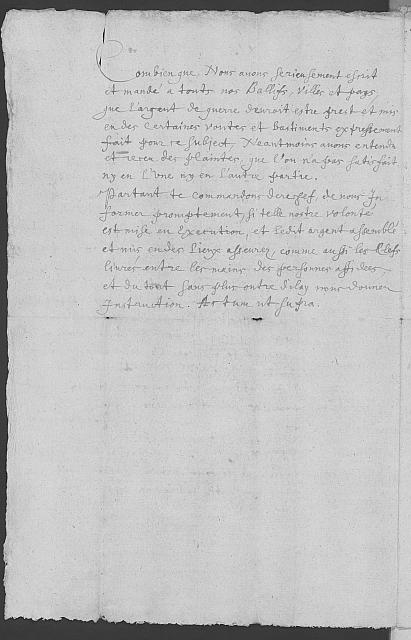 Combien que, Nous auons serieusement escrit
et mandé a touts nos Ballifs, Villes et pays
que l'argent de guerre deuroit estre prest et mis
en des certaines voutes et Bastiments expressement
fait pour ce subject, Neantmoins auons entendu
et receu des plaintes, que l'on n'a pas satisfait
ny en l'vne ny en l'autre partie.
Partant te commandons derechef de nous In
former promptement, si telle nostre volonté
est mise en Execution, et ledit argent assemblé
et mis en des Lieux asseurez, comme aussi les Clefs
liurés entre les mains des personnes affidees,
et du tout sans plus outre dilay nous donner
Instruction. Actum ut supra.